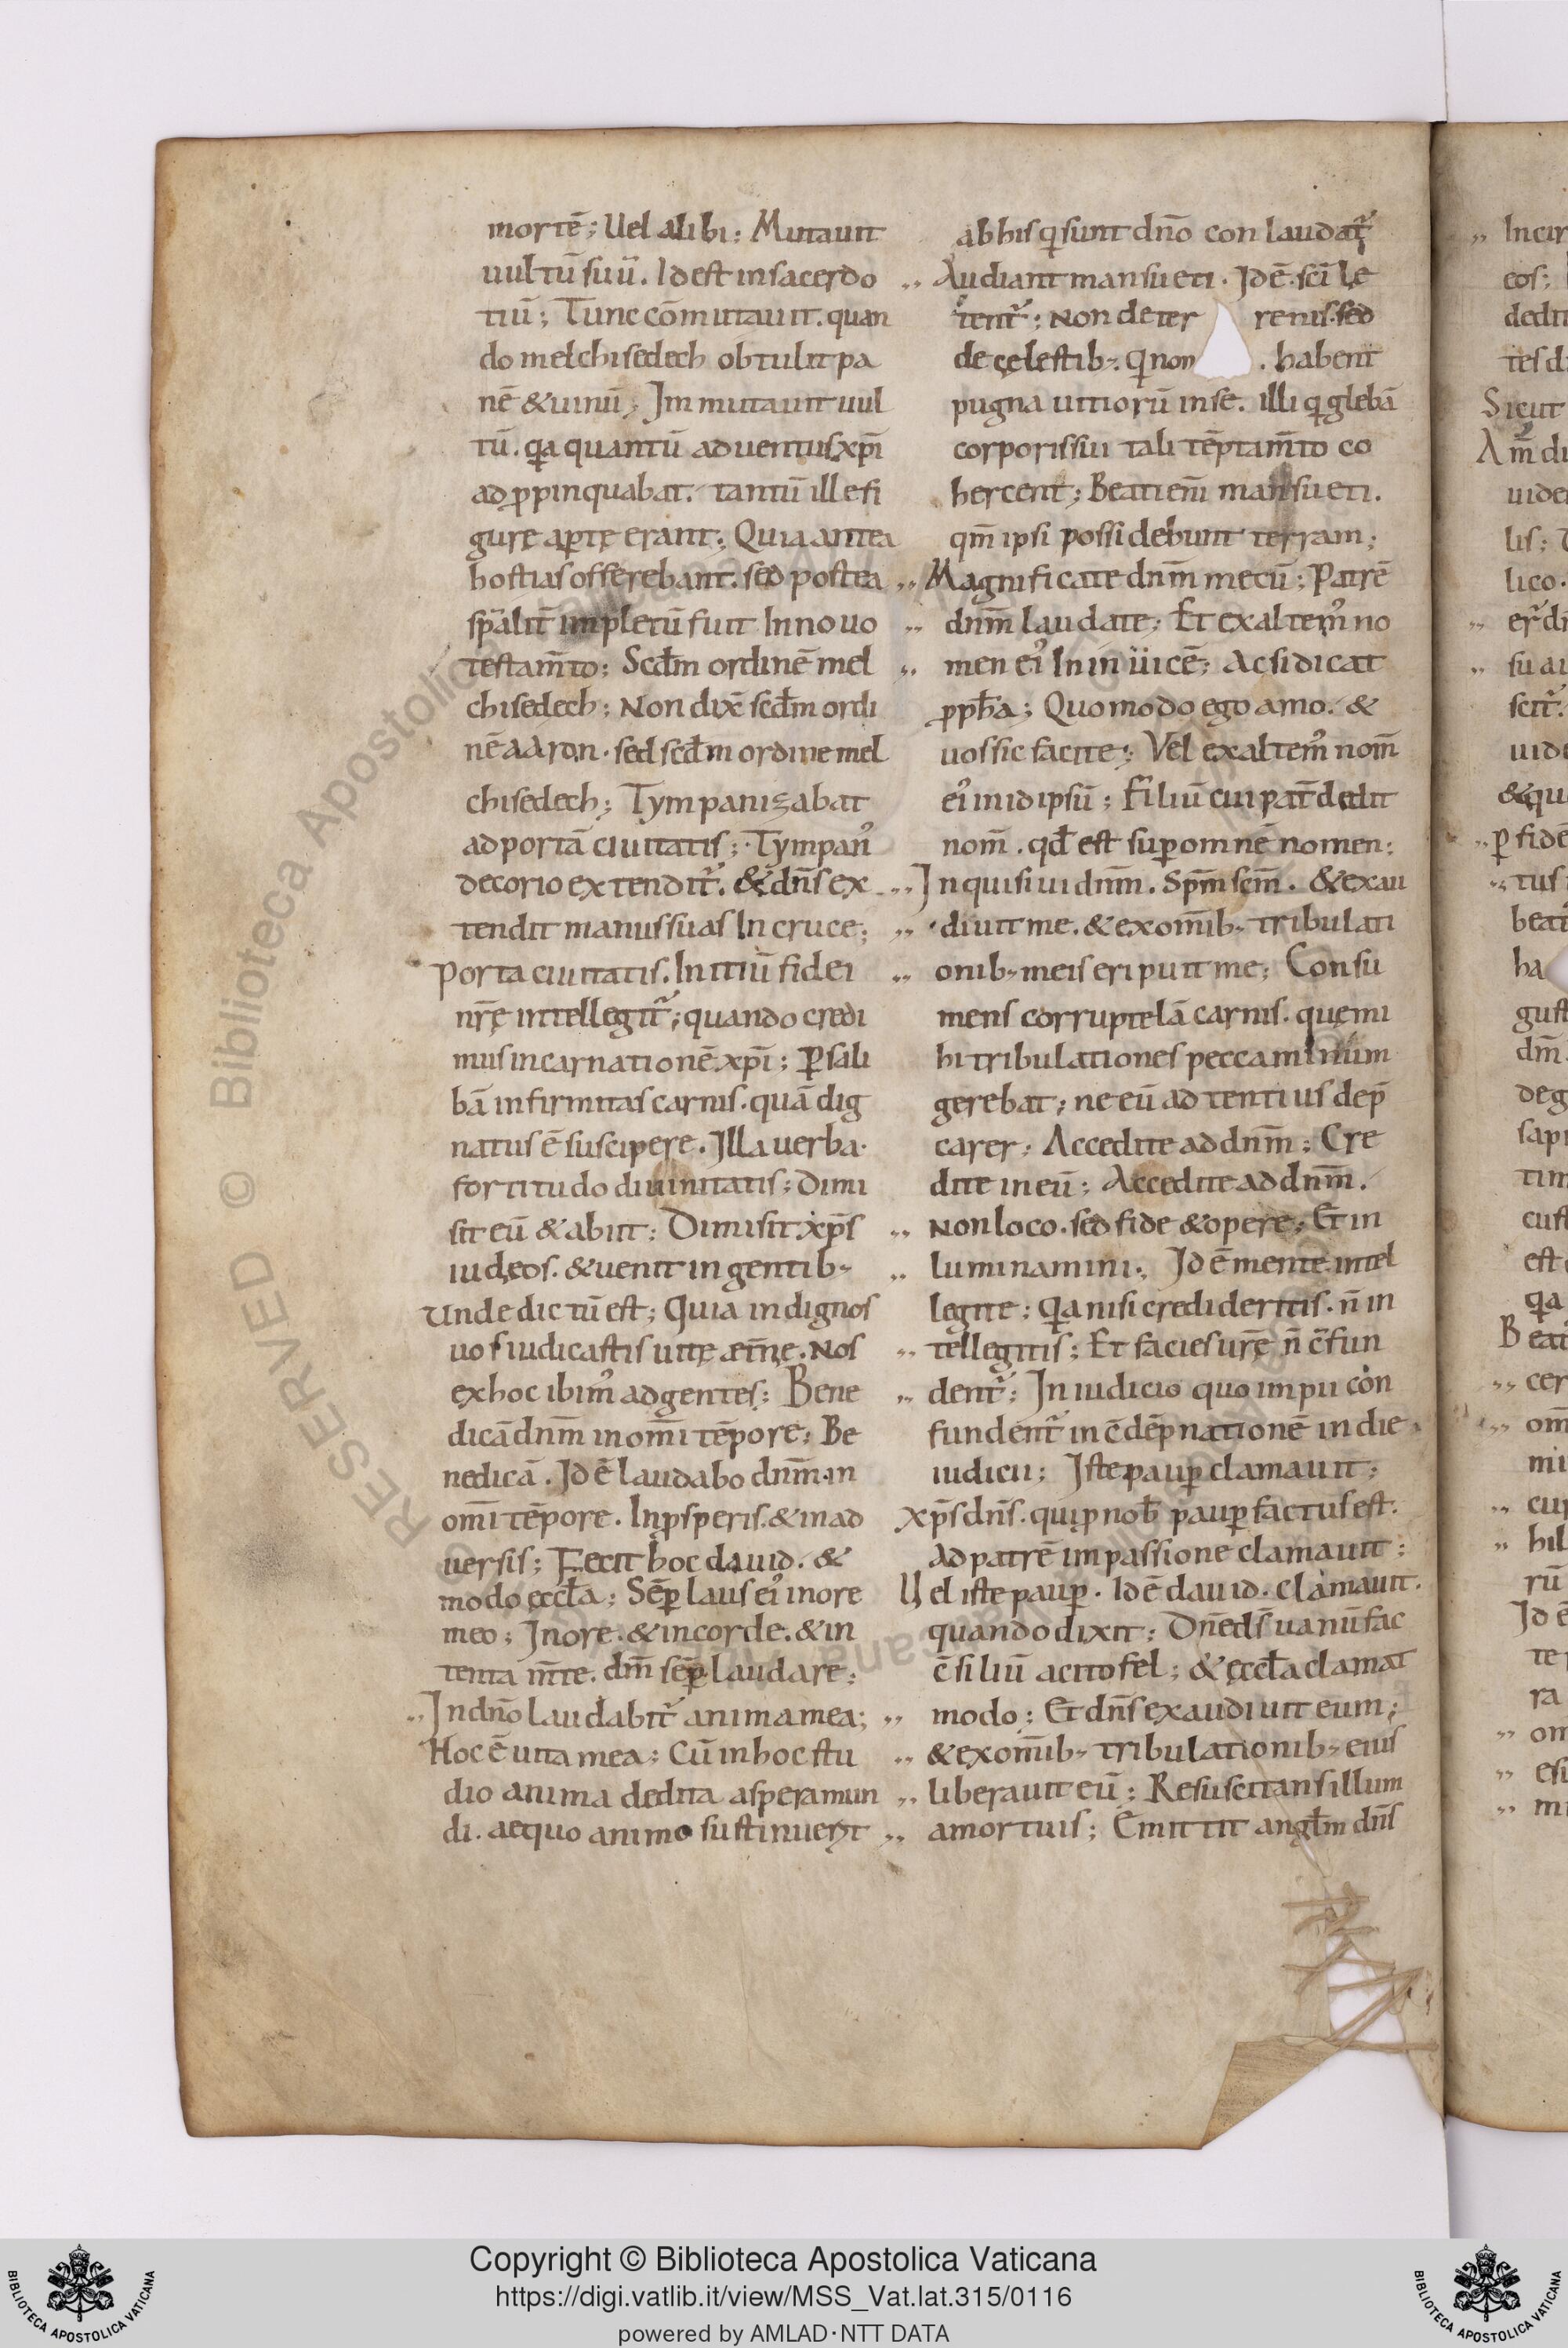 mortē; Uel alibi: Mutauit
uultū suū. Id est in sacerdo
tiū; Tunc cōmutauit. quan
do melchisedech obtulit pa
nē & uinū; Immutauit uul
tū. qa quantū aduentus xpi
adppinquabat. tantū ille fi
gurę aptę erant; Quia antea
hostias offerebant. sed postea
spalit impletū fuit In nouo
testamto; Scdm ordinē mel
chisedech; Non dix scdm ordi
nē aaron. sed scdm ordine mel
chisedech; Tympanizabat
ad portā ciuitatis; Tympan'
de corio extendit. & dns ex
tendit manus suas In cruce;
Porta ciuitatis. Initiū fidei
nrę intellegit; quando credi
mus incarnationē xpi; P sali
bā infirmitas carnis. quā dig
natus ē suscipere. Illa uerba.
fortitudo diuinitatis; Dimi
sit eū & abiit; Dimisit xps
iudęos. & uenit in gentib;
Unde dictū est; Quia indignos
uos iudicastis uitę ætnę. Nos
ex hoc ibim' ad gentes; Bene
dicā dnm in omi tēpore; Be
nedicā. Id ē laudabo dnm. in
omi tēpore. In psperis. & in ad
uersis; Fecit hoc dauid. &
modo ęccla; Sēp laus ei' in ore
meo; In ore. & in corde. & in
tenta mte. dm sēp laudare;
,, In dno laudabit anima mea;
Hoc ē uita mea; Cū in hoc stu
dio anima dedita aspera mun
di. aequo animo sustinuerit
ab his q sunt dno conlaudat
,, Audiant mansueti. Id ē. sci lę
tent; Non de ter renis. sed
de cęlestib;. q non . habent
pugna uitiorū in se. illi q glebā
corporis sui tali tēptamto co
hercent; Beati eni mansueti.
qm ipsi possidebunt terram;
,, Magnificate dnm mecū; Patrē
,, dnm laudate; Et exaltem' no
,, men ei' In inuicē; Ac si dicat
ppha; Quomodo ego amo. &
uos sic facite; Vel exaltem' nom
ei' in id ipsū; Filiū cui pat dedit
nom. qd est sup omne nomen;
,, Inquisiui dnm. Spm scm. & exau
,, diuit me. & ex omib; tribulati
,, onib; meis eripuit me; Consu
mens corruptelā carnis. quę mi
hi tribulationes peccaminum
gerebat; ne eū adtentius dep
carer; Accedite ad dnm; Cre
dite in eū; Accedite ad dnm.
,, Non loco. sed fide & opere; Et in
,, luminamini; Id ē mente intel
legite; Qa nisi credideritis. n in
,, tellegitis; Et facies urę n cfun
,, dent; In iudicio quo impii con
fundent in cdēpnationē in die
iudicii; Iste paup clamauit;
Xps dns. qui p nob paup factus est.
Ad patrē in passione clamauit;
Uel iste paup. Id ē dauid. clamauit.
quando dixit; Dne ds uanū fac
csiliū acitofel; & ęccla clamat
,, modo; Et dns exaudiuit eum;
,, & ex omib; tribulationib; eius
,, liberauit eū; Resuscitans illum
,, a mortuis; Emittit anglm dns
Copyright © Biblioteca Apostolica Vaticana
https://digi.vatlib.it/view/MSS_Vat.lat.315/0116
powered by AMLAD·NTT DATA